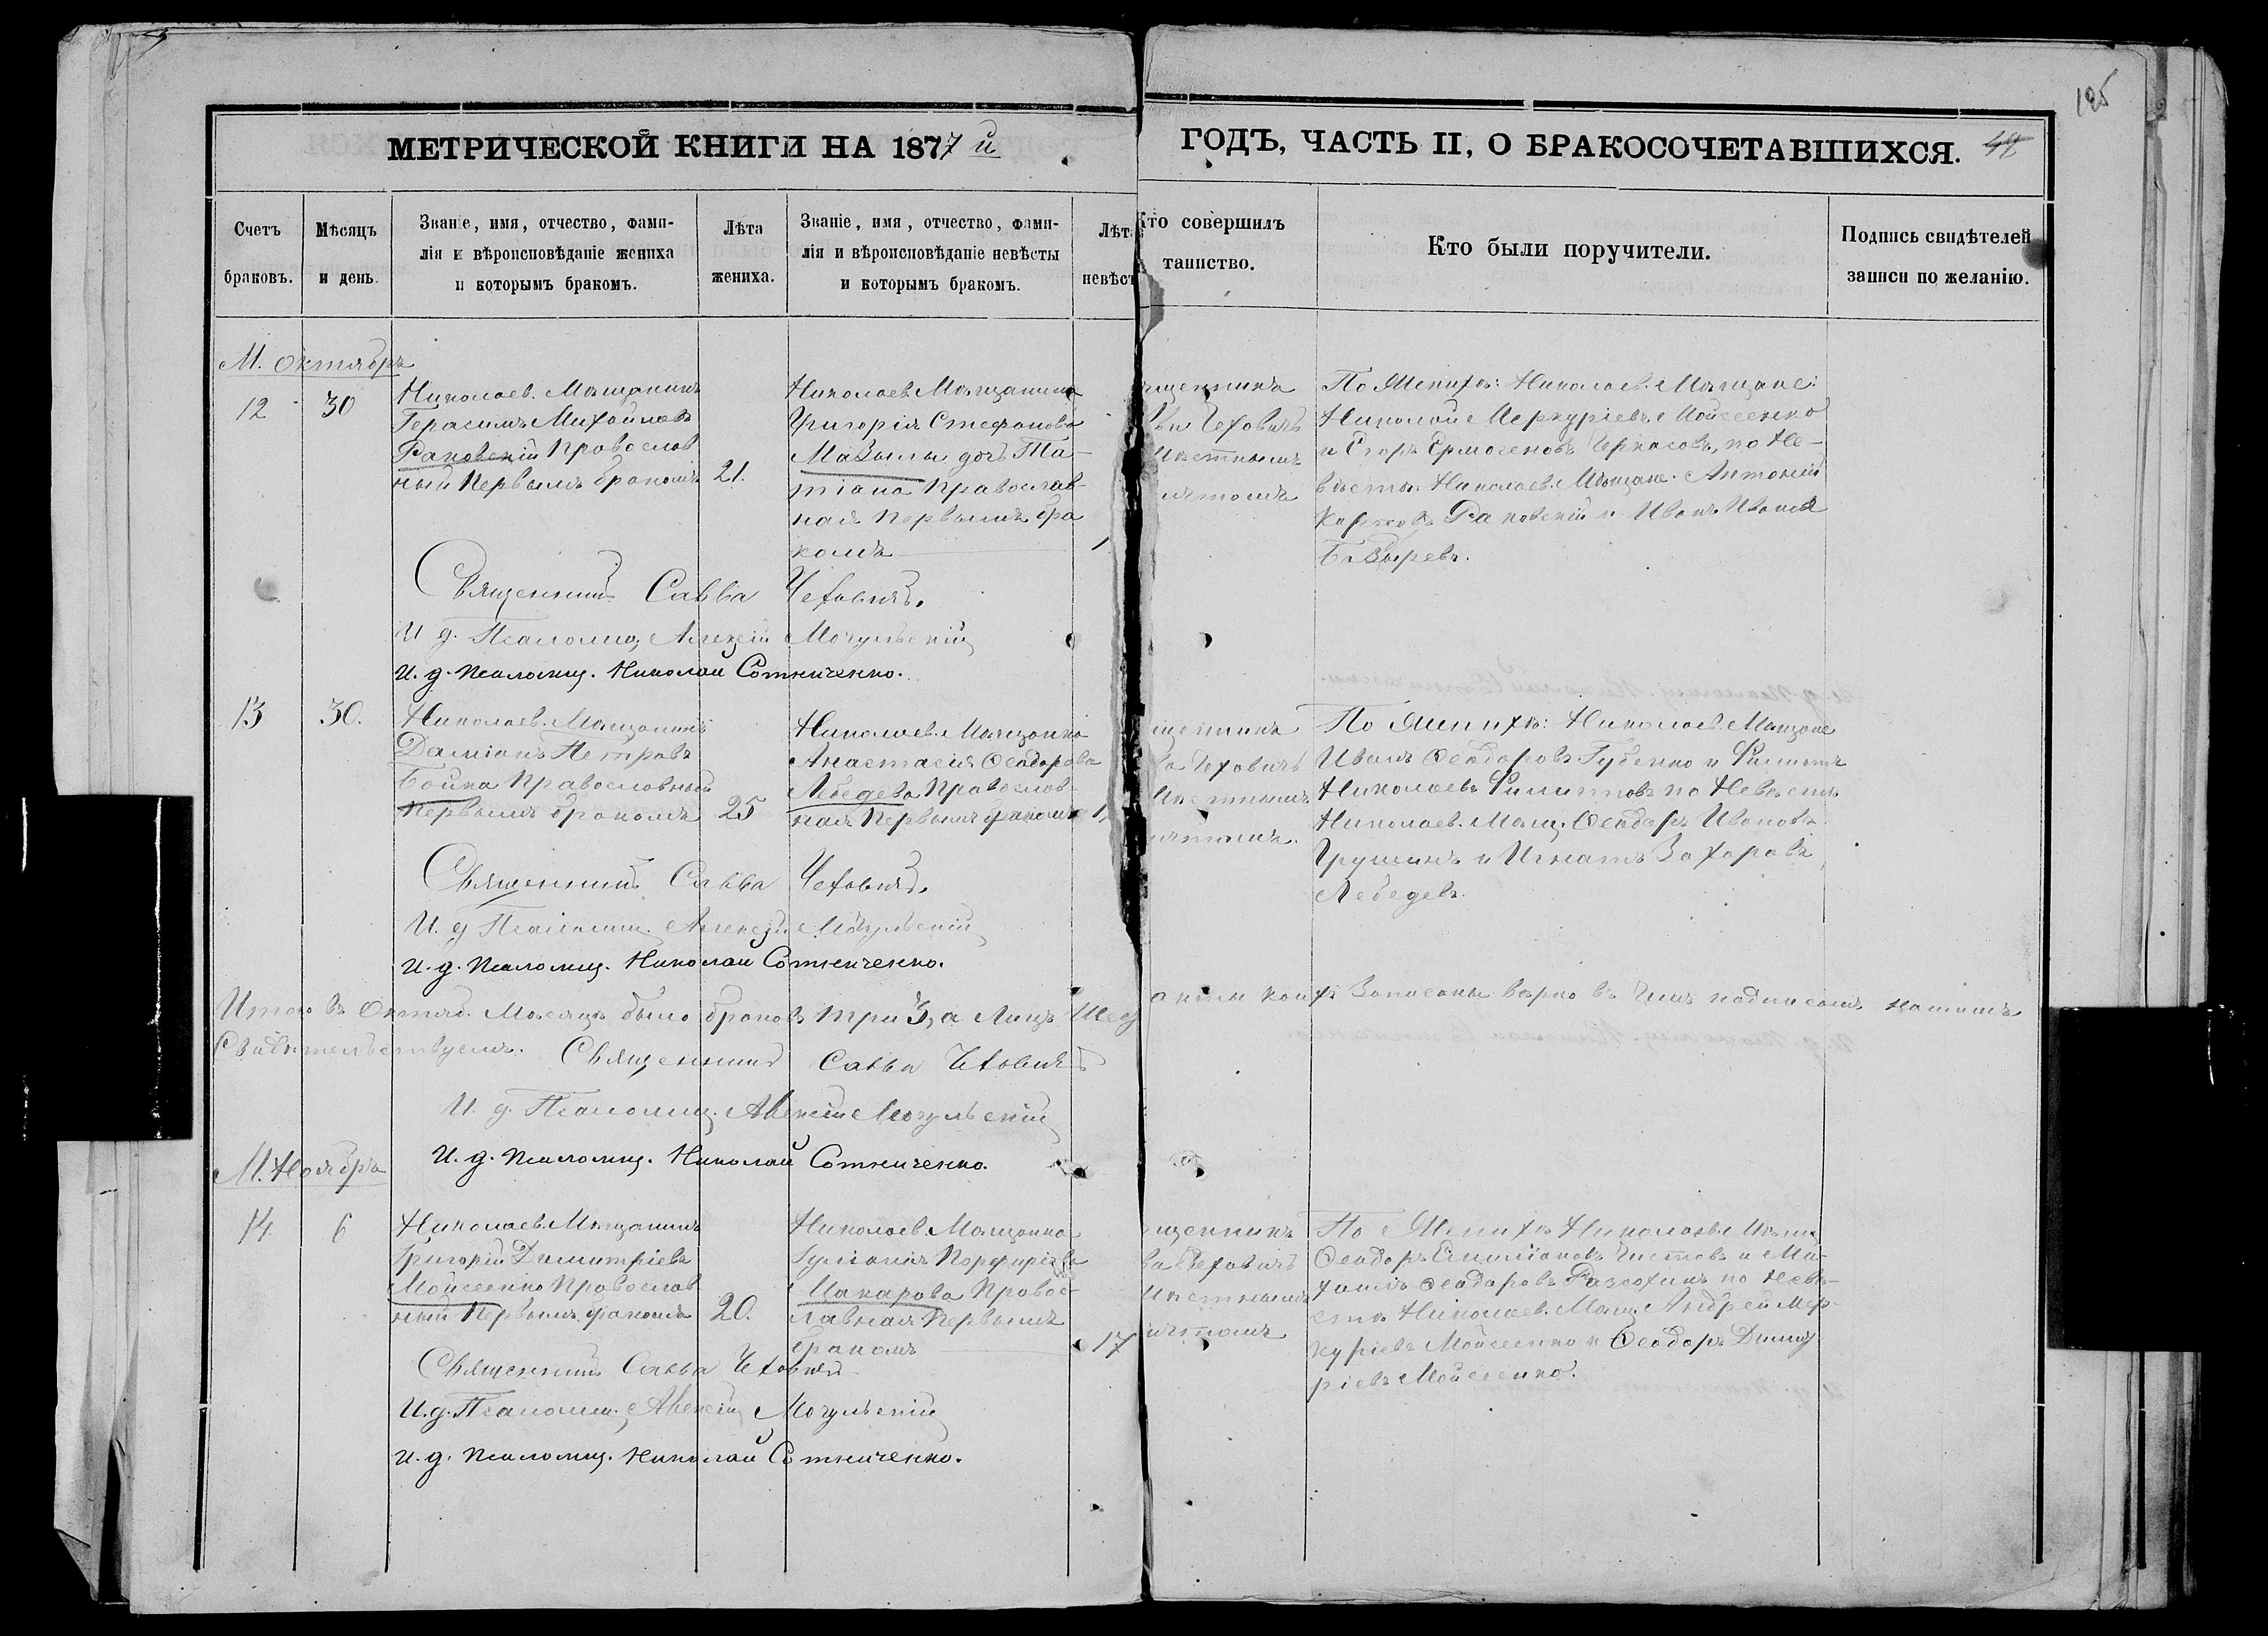 125
МЕТРИЧЕСКОЙ КНИГИ НА 1877 й
ГОДЪ, ЧАСТЬ II, О БРАКОСОЧЕТАВШИХСЯ.
Счетъ браковъ.
Мѣсяцъ и день.
Званіе, имя, отчество, фами-
лія и вѣроисповѣданіе жениха
и которымъ бракомъ.
Лѣта
жениха.
Званіе, имя, отчество, фами-
лія и вѣроисповѣданіе невѣсты
и которымъ бракомъ.
Лѣт
невѣст
Кто совершилъ
таинство.
Кто были поручители.
Подпись свидѣтелей
записи по желанію.
М. Октябрь
12
30
Николаев. Мѣщанинъ
Герасимъ Михайловъ
Раковскій Православ
ный Первымъ бракомъ
21.
Николаев. Мѣщанина
Григорія Стефанова
дочь Та-
тіана Православ-
ная Первымъ бра
комъ
щенникъ
Чеховичъ
По Женихѣ: Николаев. Мѣщане:
Николай Меркуріевъ Мойсеенко
и Егоръ Ермогеновъ Черкасовъ, по Не-
вѣстѣ: Николаев. Мѣщане. Антоній
Раковскій и Иванъ Ивановъ
Священникъ Савва Чеховичъ.
И д. Псаломщ. Алексій Мочульскій
И. д. Псаломщ. Николай Сотниченко.
13
30.
Николаев. Мѣщанинъ
Даміанъ Петровъ
Бойка Православный
Первымъ бракомъ
25
Николаев. Мѣщанка
Анастасія Ѳеодорова
Лебедева Православ-
ная Первымъ бракомъ
щенникъ
ва Чеховичъ
По Женихѣ: Николаев. Мѣщане
Иванъ Ѳеодоровъ Губенко и Филиппъ
Николаевъ Филипповъ по Невѣстѣ
Николаев. Мѣщ. Ѳеодоръ Ивановъ
Грушинъ и Игнатъ Захаровъ
Лебедевъ.
Священникъ Савва Чеховичъ.
И. д Псаломщ. Алексій Мочульскій
И. д. Псаломщ. Николай Сотниченко.
Итого въ Октяб. Мѣсяцѣ было браковъ три 3, а Лицъ Шес
коихъ Записаны вѣрно въ чемъ подписомъ нашимъ
Свидѣтельствуемъ. Священникъ Савва Чеховичъ
И. д. Псаломщ. Алексій Мочульскій
И. д. Псаломщ. Николай Сотниченко.
М. Ноябрь
14
6
Николаев. Мѣщанинъ
Григорій Димитріевъ
Мойсеенко Православ-
ный Первымъ бракомъ
20.
Николаев. Мѣщанка
Іуліанія Порфиріева
Макарова Правос-
лавная Первымъ
бракомъ
17
щенникъ
ва Чеховичъ
По Женихѣ Николаев. Мѣщ.
Ѳеодоръ Емиліановъ Чистовъ и Ми-
хаилъ Ѳеодоровъ по Невѣ-
стѣ Николаев. Мѣщ. Андрей Мер-
куріевъ Мойсеенко и Ѳеодоръ Димит
ріевъ Мойсеенко.
Священникъ Савва Чеховичъ
И. д. Псаломщ. Алексій Мочульскій
И. д. Псаломщ. Николай Сотниченко.